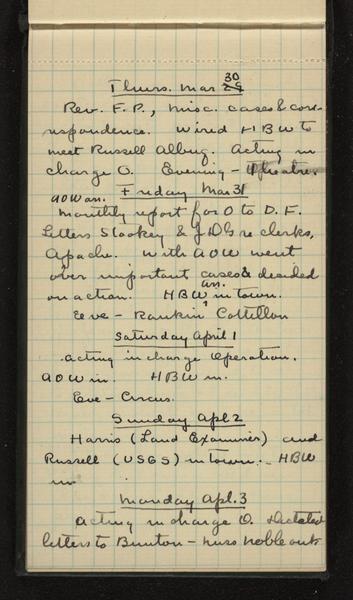 Thurs. Mar 30
Rev. F.P., misc. cases & corr-
espondence. Wired HBW to
meet Russell Albuq. Acting in
charge O. Evening - Theatre.
Friday Mar 31
AOW arr.
Monthly report for O to D.F.
Letters Slookey & JDG re clerks,
Apache. With AOW went
over important cases & decided
on action. HBW arr. in town.
Eve - Rankin Cotillon
Saturday April 1
Acting in charge Operation.
AOW in. HBW in.
Eve - Circus.
Sunday Apl. 2
Harris (Land Examiner) and
Russell (USGS) in town. HBW
in
Monday Apl. 3
Acting in charge O. Dictated
letters to Bunton - Miss Noble out